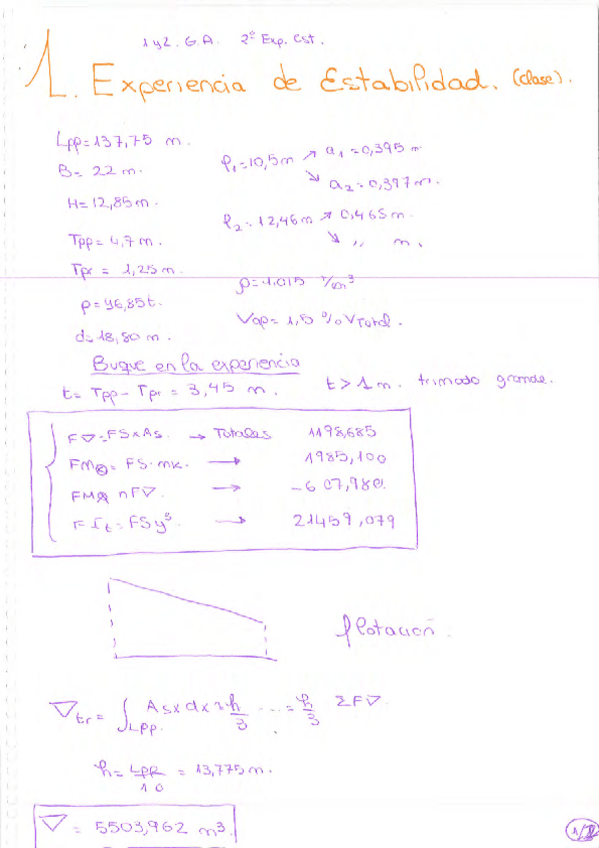 1 y 2. G.A. 2º Exp. Est.
1. Experiencia de Estabilidad. (clase).
Lpp=137,75 m.
B= 22 m.
H=12,85 m.
Tpp = 4,7 m.
Tpr = 1,25 m.
p=46,85t.
d=18,80 m.
l₁=10,5m ↗ a₁=0,395 m
↘ a₂=0,397m.
l₂=12,46m ↗ 0,465m.
↘ ,, m.
ρ=1,015 t/m³
Vap= 1,5 % VTotal.
Buque en la experiencia
t= Tpp - Tpr = 3,45 m. t>1m. trimado grande.
F∇=FSxAs. → Totales 1198,685
FM⊗= FS·mk. → 1985,100
FM⊗ nF∇. → -607,980.
FIt=FSy³. → 21459,079
flotación.
∇tr= ∫Lpp. Asxdx≈h/3 ...=h/3 ΣF∇.
h=Lpp/10 = 13,775m.
∇= 5503,962 m³.